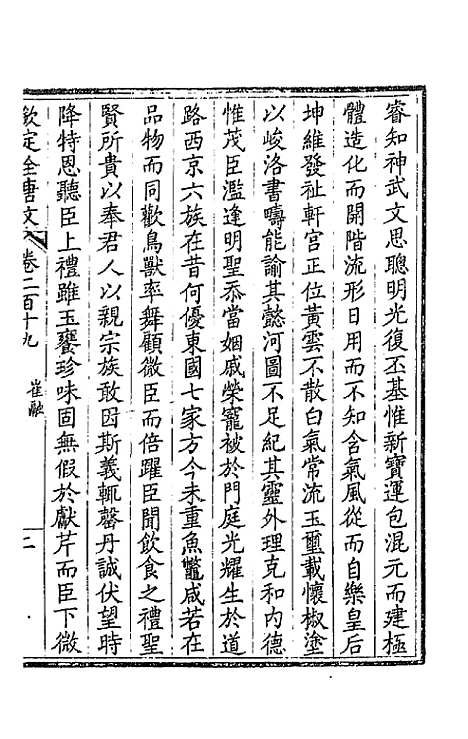 睿知神武文思聰明光復丕基惟新寶運包混元而建極
體造化而開階流形日用而不知含氣風從而自樂皇后
坤維發祉軒宮正位黃雲不散白氣常流玉璽載懷椒塗
以峻洛書疇能諭其懿河圖不足紀其靈外理克和內德
惟茂臣濫逢明聖忝當姻戚榮寵被於門庭光耀生於道
路西京六族在昔何優東國七家方今未重魚鼈咸若在
品物而同歡鳥獸率舞顧微臣而倍躍臣聞飲食之禮聖
賢所貴以奉君人以親宗族敢因斯義輒罄丹誠伏望時
降特恩聽臣上禮雖玉饔珍味固無假於獻芹而臣下微
欽定全唐文 卷二百十九 崔融 二